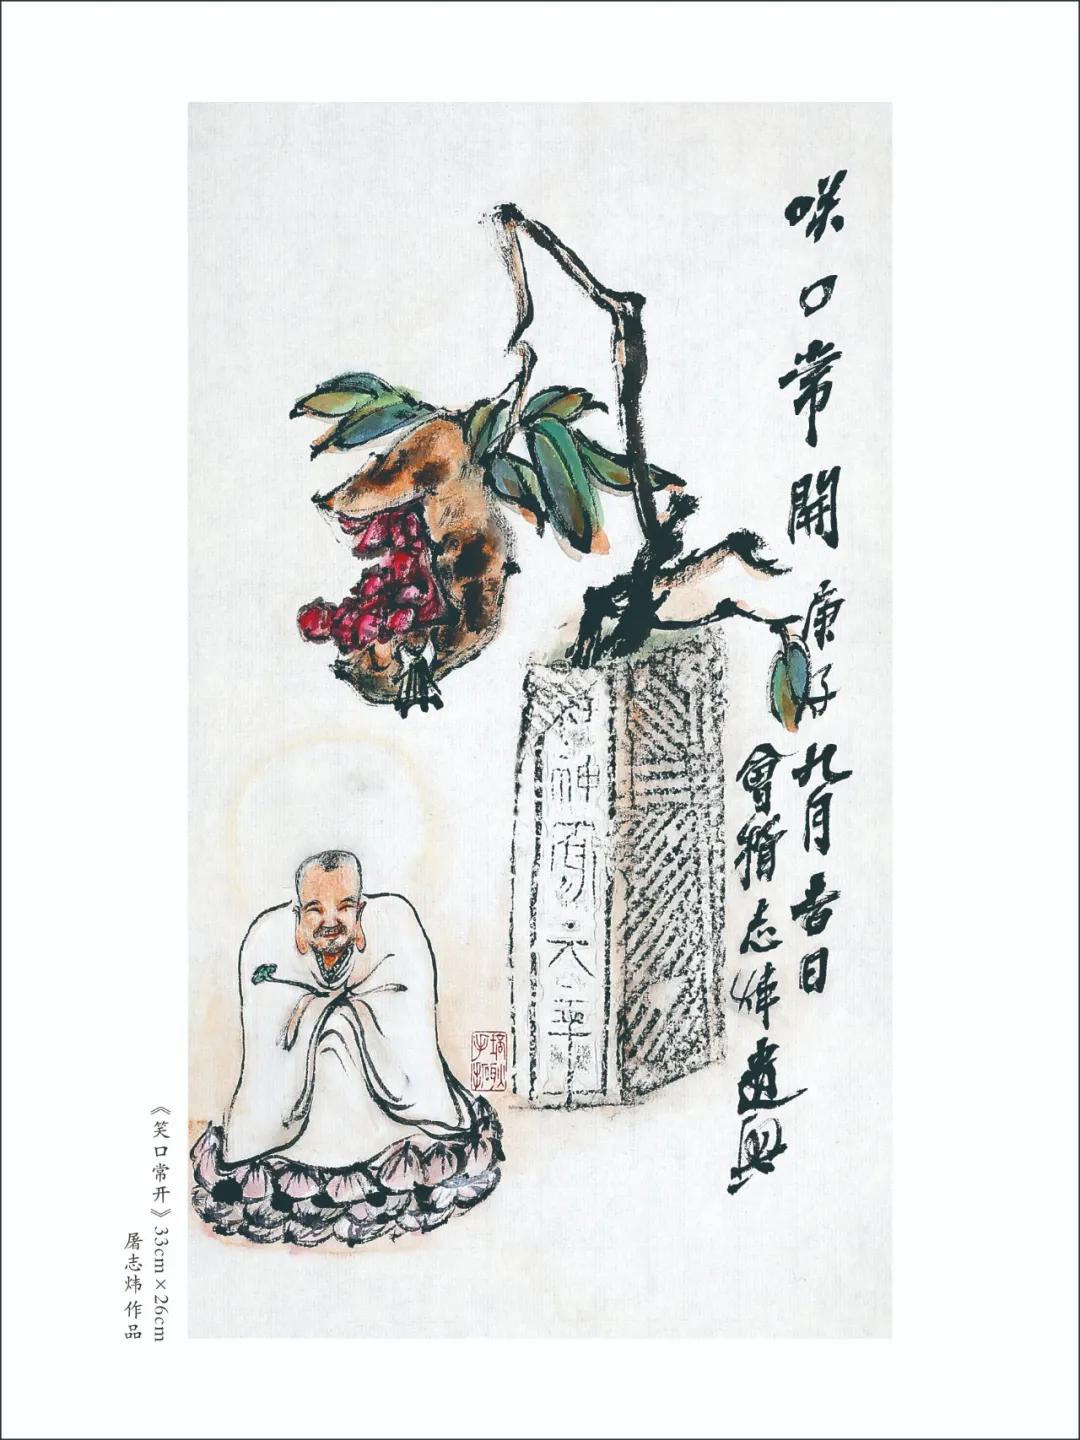 咲口常開 庚子九月吉日
會稽志煒遣興
神
天平
《笑口常开》33cm×26cm
屠志炜 作品